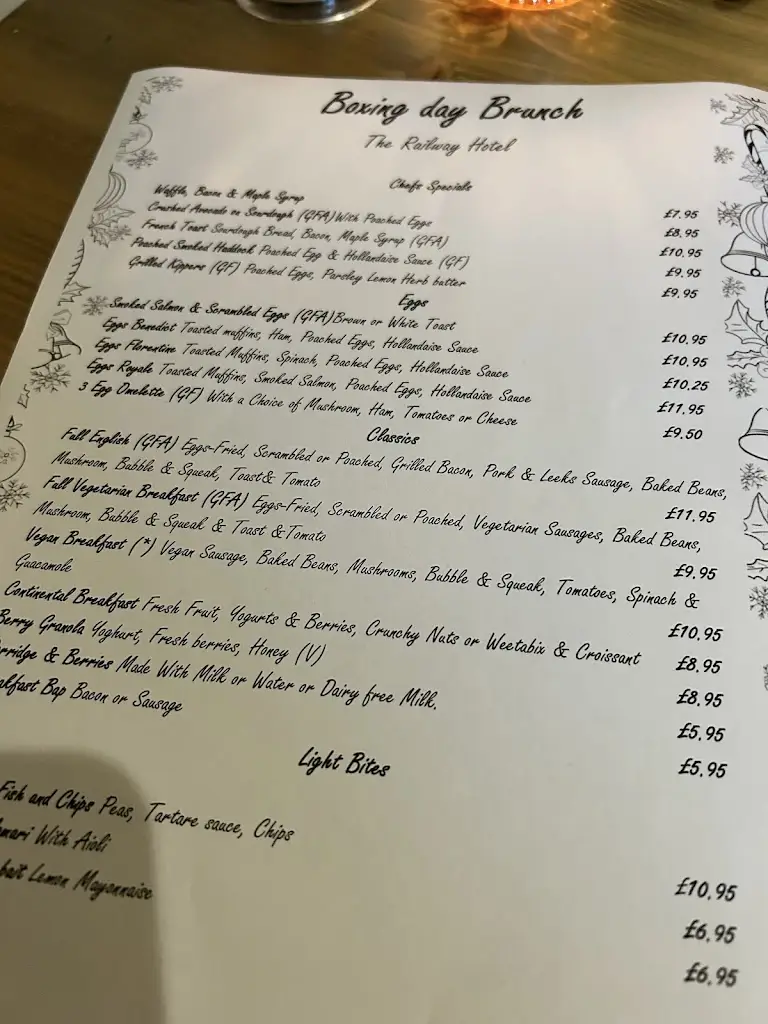 Boxing day Brunch
The Railway Hotel
Chefs Specials
Waffle, Bacon & Maple Syrup £7.95
Crushed Avocado on Sourdough (GFA) With Poached Eggs £8.95
French Toast Sourdough Bread, Bacon, Maple Syrup (GFA) £10.95
Poached Smoked Haddock Poached Egg & Hollandaise Sauce (GF) £9.95
Grilled Kippers (GF) Poached Eggs, Parsley Lemon Herb butter £9.95
Eggs
Smoked Salmon & Scrambled Eggs (GFA) Brown or White Toast £10.95
Eggs Benedict Toasted muffins, Ham, Poached Eggs, Hollandaise Sauce £10.95
Eggs Florentine Toasted Muffins, Spinach, Poached Eggs, Hollandaise Sauce £10.25
Eggs Royale Toasted Muffins, Smoked Salmon, Poached Eggs, Hollandaise Sauce £11.95
3 Egg Omelette (GF) With a Choice of Mushroom, Ham, Tomatoes or Cheese £9.50
Classics
Full English (GFA) Eggs-Fried, Scrambled or Poached, Grilled Bacon, Pork & Leeks Sausage, Baked Beans,
Mushroom, Bubble & Squeak, Toast& Tomato £11.95
Full Vegetarian Breakfast (GFA) Eggs-Fried, Scrambled or Poached, Vegetarian Sausages, Baked Beans,
Mushroom, Bubble & Squeak & Toast &Tomato £9.95
Vegan Breakfast (*) Vegan Sausage, Baked Beans, Mushrooms, Bubble & Squeak, Tomatoes, Spinach &
Guacamole £10.95
Continental Breakfast Fresh Fruit, Yogurts & Berries, Crunchy Nuts or Weetabix & Croissant £8.95
Berry Granola Yoghurt, Fresh berries, Honey (V) £8.95
rridge & Berries Made With Milk or Water or Dairy free Milk. £5.95
akfast Bap Bacon or Sausage £5.95
Light Bites
Fish and Chips Peas, Tartare sauce, Chips £10.95
mari With Aioli £6.95
bait Lemon Mayonnaise £6.95